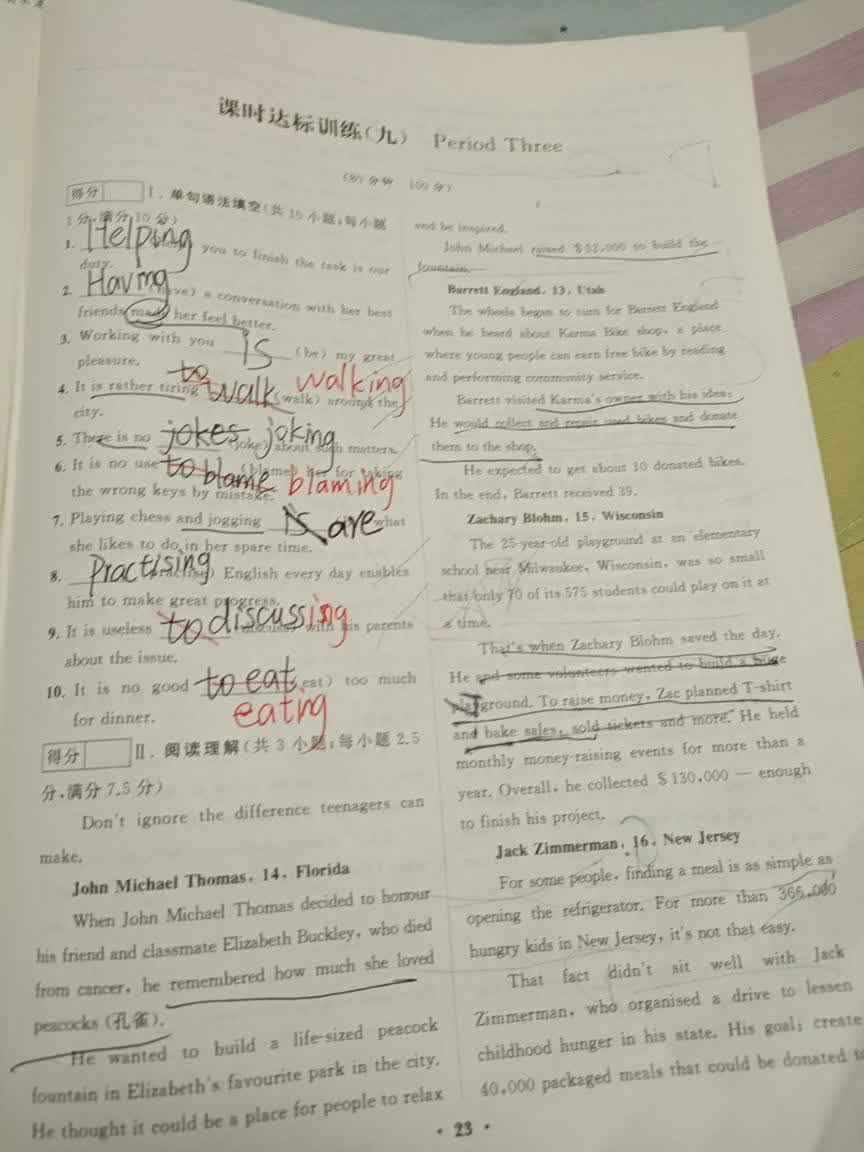 课时达标训练(九) Period Three
(80分钟 100分)
得分 Ⅰ.单句语法填空(共10小题;每小题
1分,满分10分)
1. Helping you to finish the task is our
duty.
2. Having (have) a conversation with her best
friends made her feel better.
3. Working with you is (be) my great
pleasure.
4. It is rather tiring to walk walking (walk) around the
city.
5. There is no jokes joking (joke) about such matters.
6. It is no use to blame (blame) her for taking
the wrong keys by mistake. blaming
7. Playing chess and jogging is are what
she likes to do in her spare time.
8. Practising English every day enables
him to make great progress.
9. It is useless to discussing with his parents
about the issue.
10. It is no good to eat (eat) too much
for dinner. eating
得分 Ⅱ.阅读理解(共3小题;每小题2.5
分,满分7.5分)
Don't ignore the difference teenagers can
make.
John Michael Thomas, 14, Florida
When John Michael Thomas decided to honour
his friend and classmate Elizabeth Buckley, who died
from cancer, he remembered how much she loved
peacocks (孔雀).
He wanted to build a life-sized peacock
fountain in Elizabeth's favourite park in the city.
He thought it could be a place for people to relax
and be inspired.
John Michael raised $52,000 to build the
fountain.
Barrett England, 13, Utah
The wheels began to turn for Barrett England
when he heard about Karma Bike shop, a place
where young people can earn free bike by reading
and performing community service.
Barrett visited Karma's owner with his idea:
He would collect and repair used bikes and donate
them to the shop.
He expected to get about 10 donated bikes.
In the end, Barrett received 39.
Zachary Blohm, 15, Wisconsin
The 25-year-old playground at an elementary
school near Milwaukee, Wisconsin, was so small
that only 70 of its 575 students could play on it at
a time.
That's when Zachary Blohm saved the day.
He and some volunteers wanted to build a huge
playground. To raise money, Zac planned T-shirt
and bake sales, sold tickets and more. He held
monthly money-raising events for more than a
year. Overall, he collected $130,000 — enough
to finish his project.
Jack Zimmerman, 16, New Jersey
For some people, finding a meal is as simple as
opening the refrigerator. For more than 366,000
hungry kids in New Jersey, it's not that easy.
That fact didn't sit well with Jack
Zimmerman, who organised a drive to lessen
childhood hunger in his state. His goal: create
40,000 packaged meals that could be donated to
· 23 ·